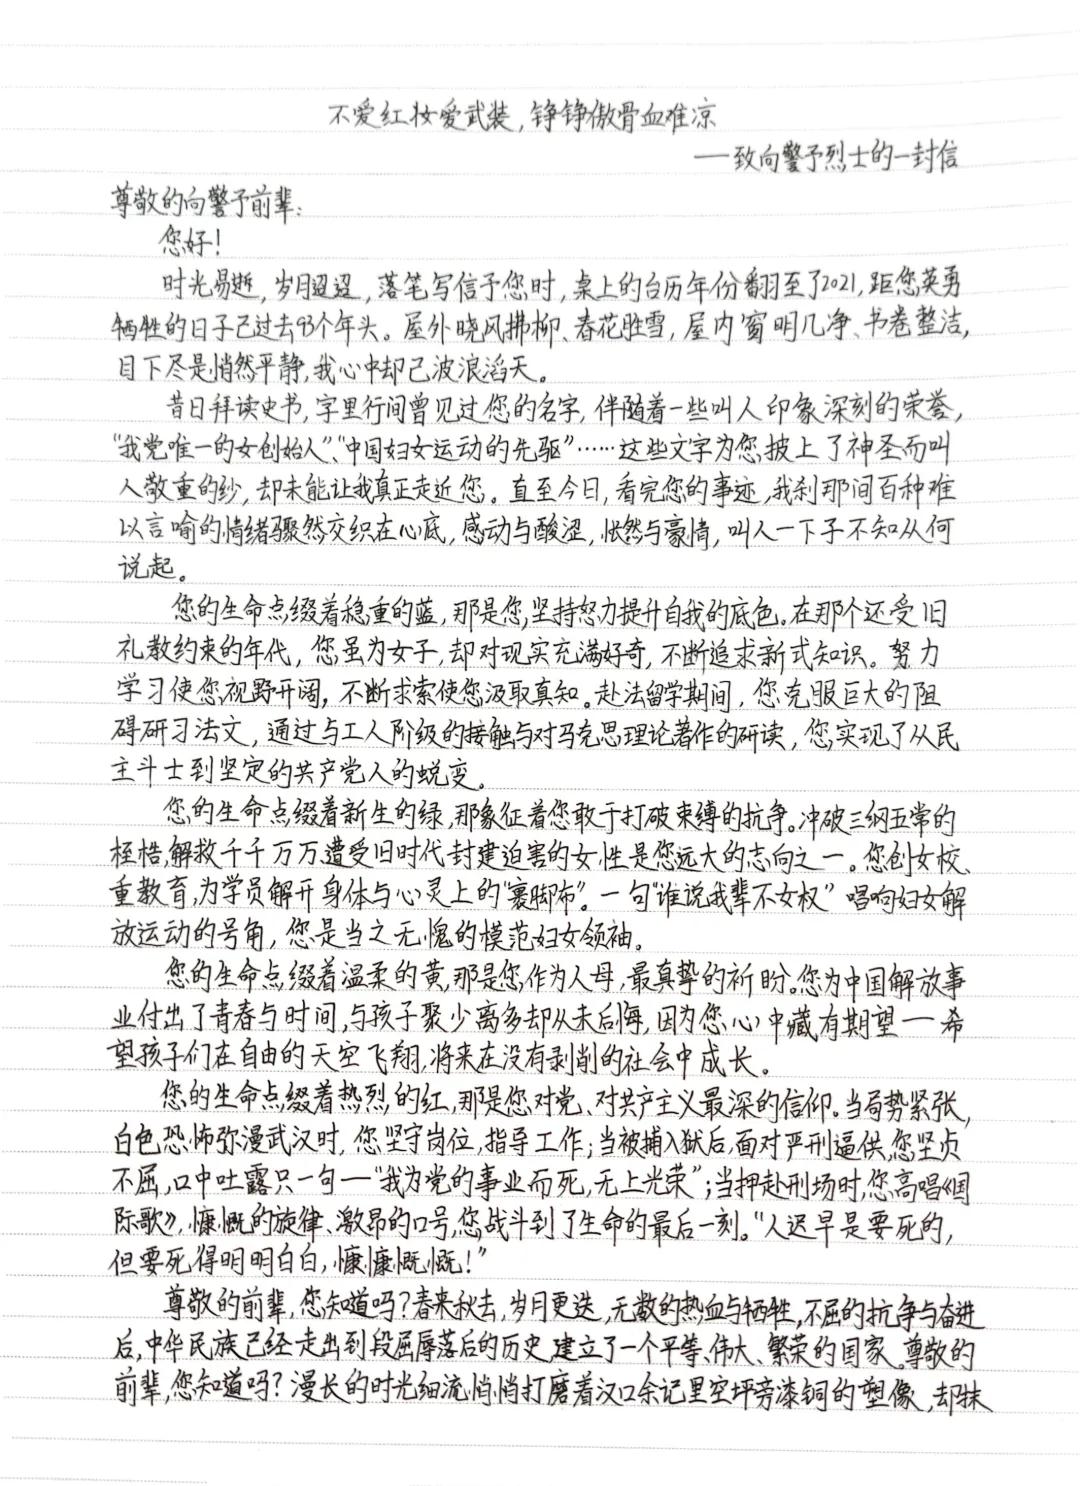 不爱红妆爱武装,铮铮傲骨血难凉
——致向警予烈士的一封信
尊敬的向警予前辈:
您好!
时光易逝,岁月迢迢,落笔写信予您时,桌上的台历年份翻至了2021,距您英勇
牺牲的日子已过去93个年头。屋外晓风拂柳、春花胜雪,屋内窗明几净、书卷整洁,
目下尽是悄然平静,我心中却已波浪滔天。
昔日拜读史书,字里行间曾见过您的名字,伴随着一些叫人印象深刻的荣誉,
“我党唯一的女创始人”、“中国妇女运动的先驱”……这些文字为您披上了神圣而叫
人敬重的纱,却未能让我真正走近您。直至今日,看完您的事迹,我刹那间百种难
以言喻的情绪骤然交织在心底,感动与酸涩,怅然与豪情,叫人一下子不知从何
说起。
您的生命点缀着稳重的蓝,那是您坚持努力提升自我的底色。在那个还受旧
礼教约束的年代,您虽为女子,却对现实充满好奇,不断追求新式知识。努力
学习使您视野开阔,不断求索使您汲取真知。赴法留学期间,您克服巨大的阻
碍研习法文,通过与工人阶级的接触与对马克思理论著作的研读,您实现了从民
主斗士到坚定的共产党人的蜕变。
您的生命点缀着新生的绿,那象征着您敢于打破束缚的抗争。冲破三纲五常的
桎梏,解救千千万万遭受旧时代封建迫害的女性是您远大的志向之一。您创女校、
重教育,为学员解开身体与心灵上的“裹脚布”。一句“谁说我辈不女权”唱响妇女解
放运动的号角,您是当之无愧的模范妇女领袖。
您的生命点缀着温柔的黄,那是您作为人母,最真挚的祈盼。您为中国解放事
业付出了青春与时间,与孩子聚少离多却从未后悔,因为您心中藏有期望——希
望孩子们在自由的天空飞翔,将来在没有剥削的社会中成长。
您的生命点缀着热烈的红,那是您对党、对共产主义最深的信仰。当局势紧张,
白色恐怖弥漫武汉时,您坚守岗位,指导工作;当被捕入狱后,面对严刑逼供,您坚贞
不屈,口中吐露只一句——“我为党的事业而死,无上光荣”;当押赴刑场时,您高唱《国
际歌》,慷慨的旋律、激昂的口号,您战斗到了生命的最后一刻。“人迟早是要死的,
但要死得明明白白,慷慷慨慨!”
尊敬的前辈,您知道吗?春来秋去,岁月更迭,无数的热血与牺牲,不屈的抗争与奋进
后,中华民族已经走出到段屈辱落后的历史,建立了一个平等、伟大、繁荣的国家。尊敬的
前辈,您知道吗?漫长的时光细流悄悄打磨着汉口余记里空坪旁漆铜的塑像,却抹